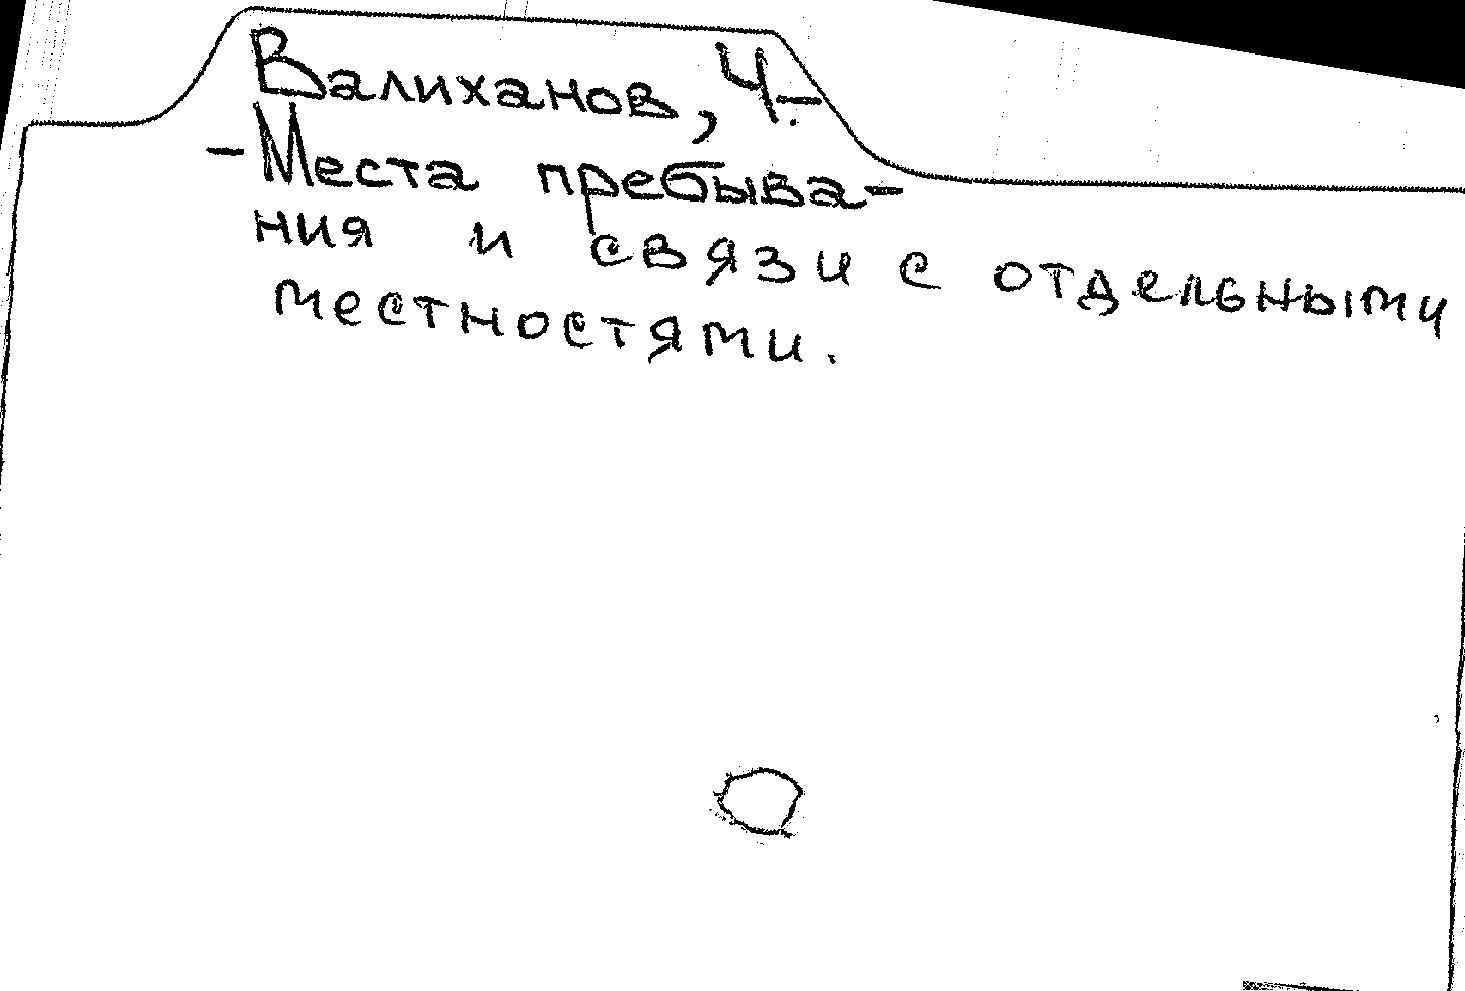 Валиханов, Ч.-
-Места пребыва-
ния и связи с отдельными
местностями.